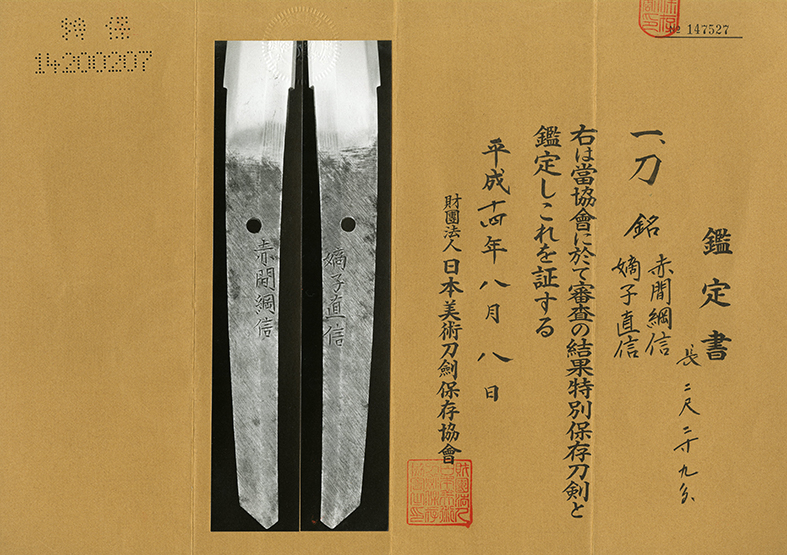 特保
14200207
№ 147527
鑑定書
一、刀 銘 赤間綱信
嫡子直信
長二尺二寸九分
右は當協會に於て審査の結果特別保存刀剣と
鑑定しこれを証する
平成十四年八月八日
財團法人日本美術刀劍保存協會
赤間綱信
嫡子直信